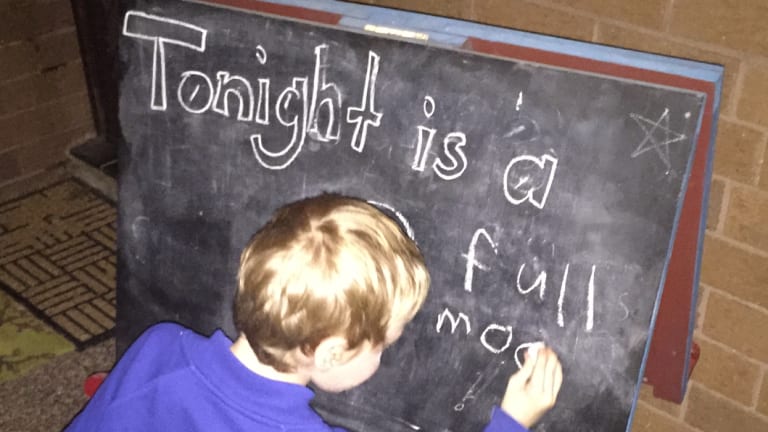 Tonight is a
full
moo